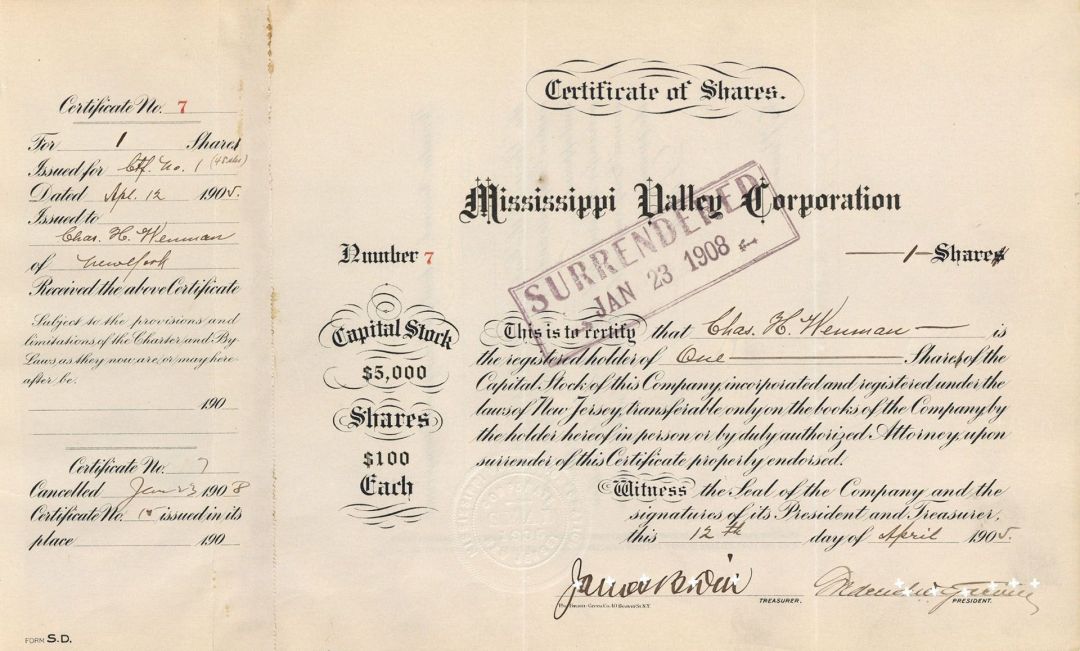 Certificate No. 7
For 1 Share
Issued for Ctf. No. 1 (45 shs)
Dated Apl. 12 1905.
Issued to
Chas. H. Wenman
of New York
Received the above Certificate
Subject to the provisions and
limitations of the Charter and By-
Laws as they now are, or may here-
after be.
190
Certificate No. 7
Cancelled Jan 23 1908
Certificate No. issued in its
place 190
FORM S.D.
Certificate of Shares.
Mississippi Valley Corporation
SURRENDERED
JAN 23 1908
Number 7
1 Share
Capital Stock
$5,000
Shares
$100
Each
This is to certify that Chas. H. Wenman is
the registered holder of One Share of the
Capital Stock of this Company, incorporated and registered under the
laws of New Jersey, transferable only on the books of the Company by
the holder hereof in person or by duly authorized Attorney, upon
surrender of this Certificate properly endorsed.
Witness the Seal of the Company and the
signatures of its President and Treasurer,
this 12th day of April 1905.
TREASURER.
PRESIDENT.